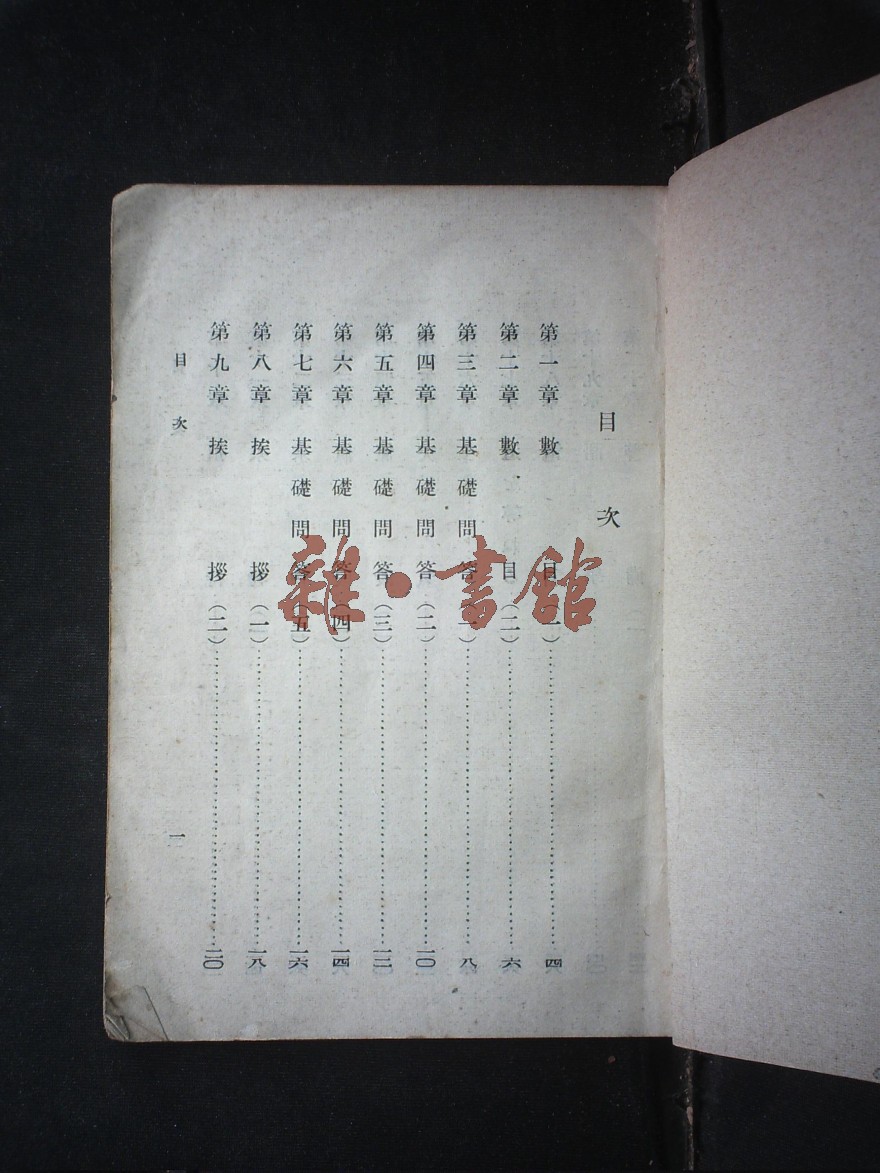 目次
第一章 數目(一)……四
第二章 數目(二)……六
第三章 基礎問答(一)……八
第四章 基礎問答(二)……一〇
第五章 基礎問答(三)……一二
第六章 基礎問答(四)……一四
第七章 基礎問答(五)……一六
第八章 挨拶(一)……一八
第九章 挨拶(二)……二〇
目次
一
雜·書館